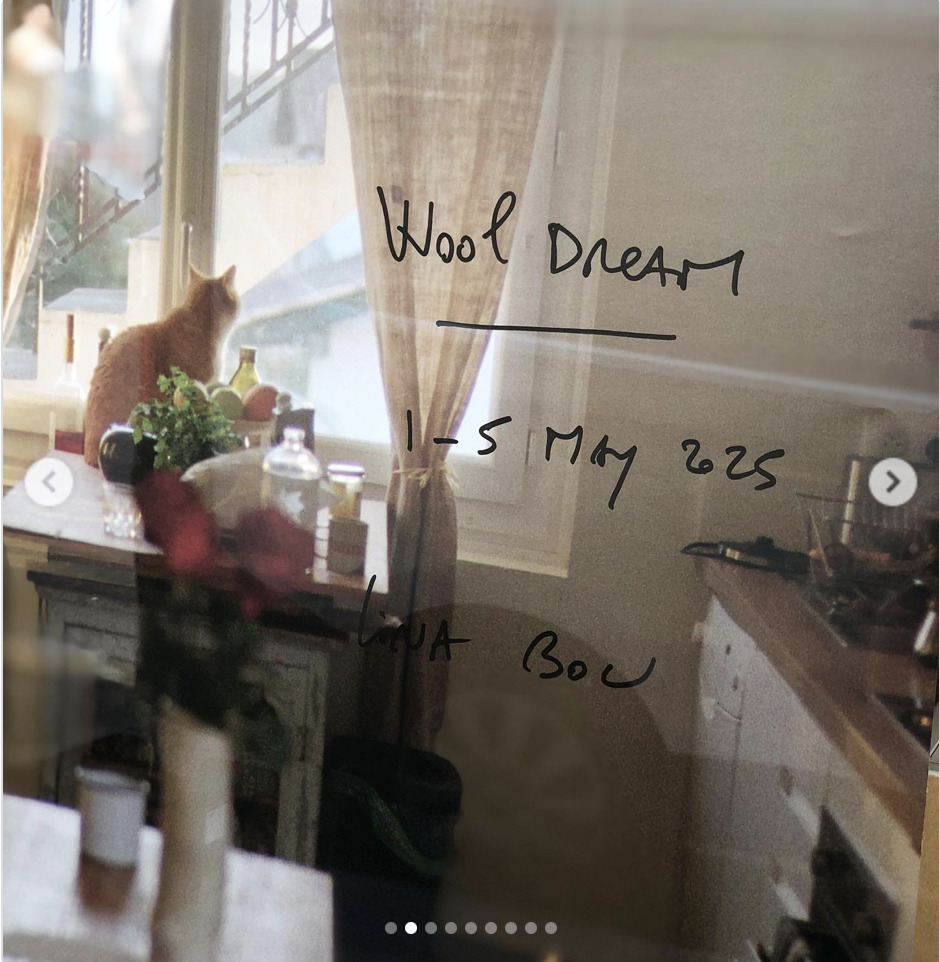 Wool DREAM
1-5 MAY 2025
LINA BOU